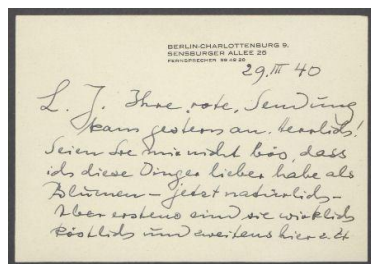 BERLIN-CHARLOTTENBURG 9,
SENSBURGER ALLEE 26
FERNSPRECHER 99 48 26
29. III 40
L. J. Ihre „rote" Sendung
kam gestern an. Herrlich!
Seien Sie mir nicht bös, dass
ich diese Dinger lieber habe als
Blumen – jetzt natürlich –
Aber erstens sind sie wirklich
köstlich und zweitens hier z. Zt